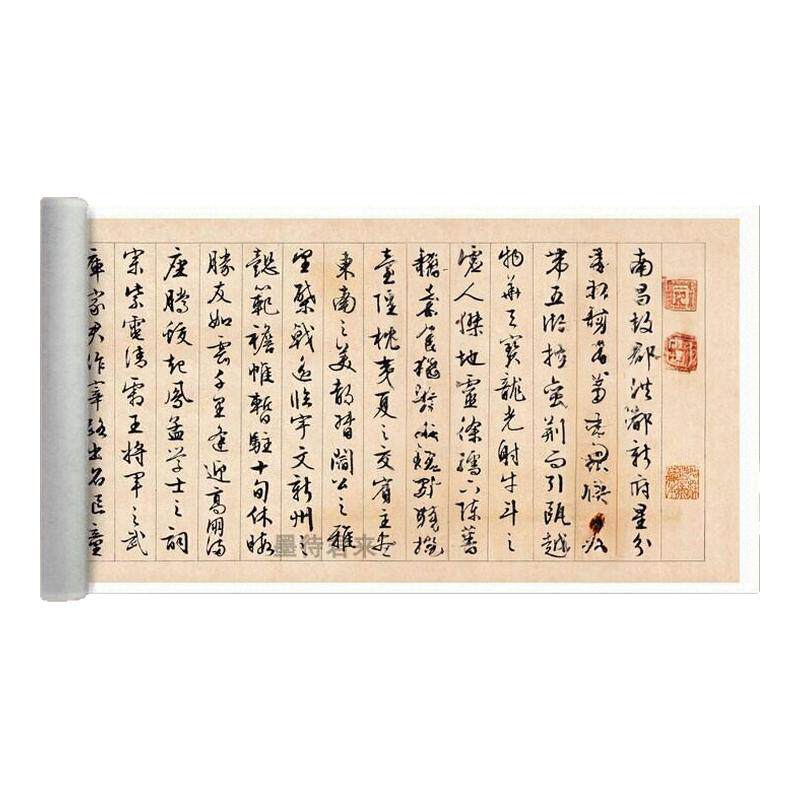 南昌故郡洪都新府星分
帶五湖控蠻荊而引甌越
物華天寶龍光射牛斗之
墟人傑地靈徐孺下陳蕃
臺隍枕夷夏之交賓主盡
東南之美都督閻公之雅
望棨戟遙臨宇文新州之
懿範襜帷暫駐十旬休暇
勝友如雲千里逢迎高朋滿
座騰蛟起鳳孟学士之詞
宗紫電清霜王將軍之武
庫家君作宰路出名區童
墨待君来